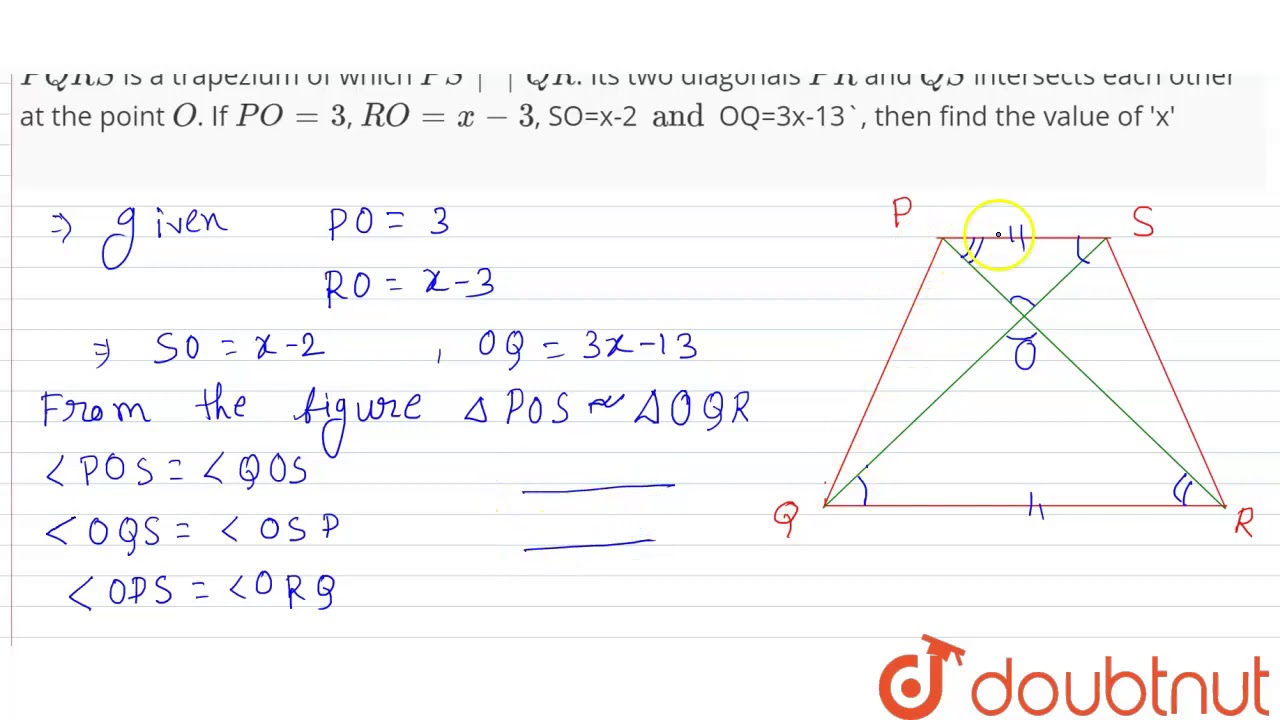 PQRS is a trapezium of which PS || QR. Its two diagonals PR and QS intersects each other
at the point O. If PO = 3, RO = x − 3, SO=x-2 and OQ=3x-13`, then find the value of 'x'
⇒ given PO = 3
RO = x-3
⇒ SO = x-2 , OQ = 3x-13
From the figure △POS ~ △OQR
<POS = <QOS
<OQS = <OSP
<OPS = <ORQ
P
S
O
Q
R
doubtnut